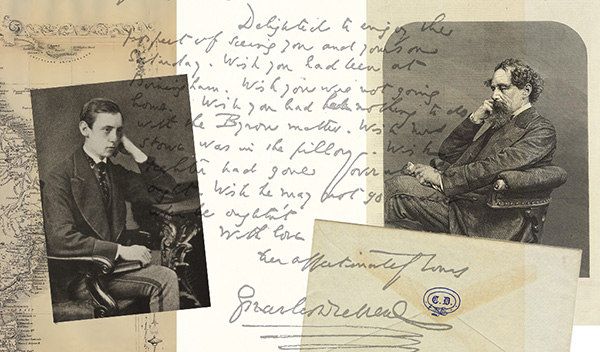 Delighted to enjoy the
prospect of seeing you and yours on
Saturday. Wish you had been at
Birmingham. Wish you were not going
home. Wish you had had nothing to do
with the Byron matter. Wish
Stowe was in the pillory. Wish
Fechter had gone over when
ought. Wish he may not go
he oughtn't
With love
Ever affectionately yours
Charles Dickens
C.D.